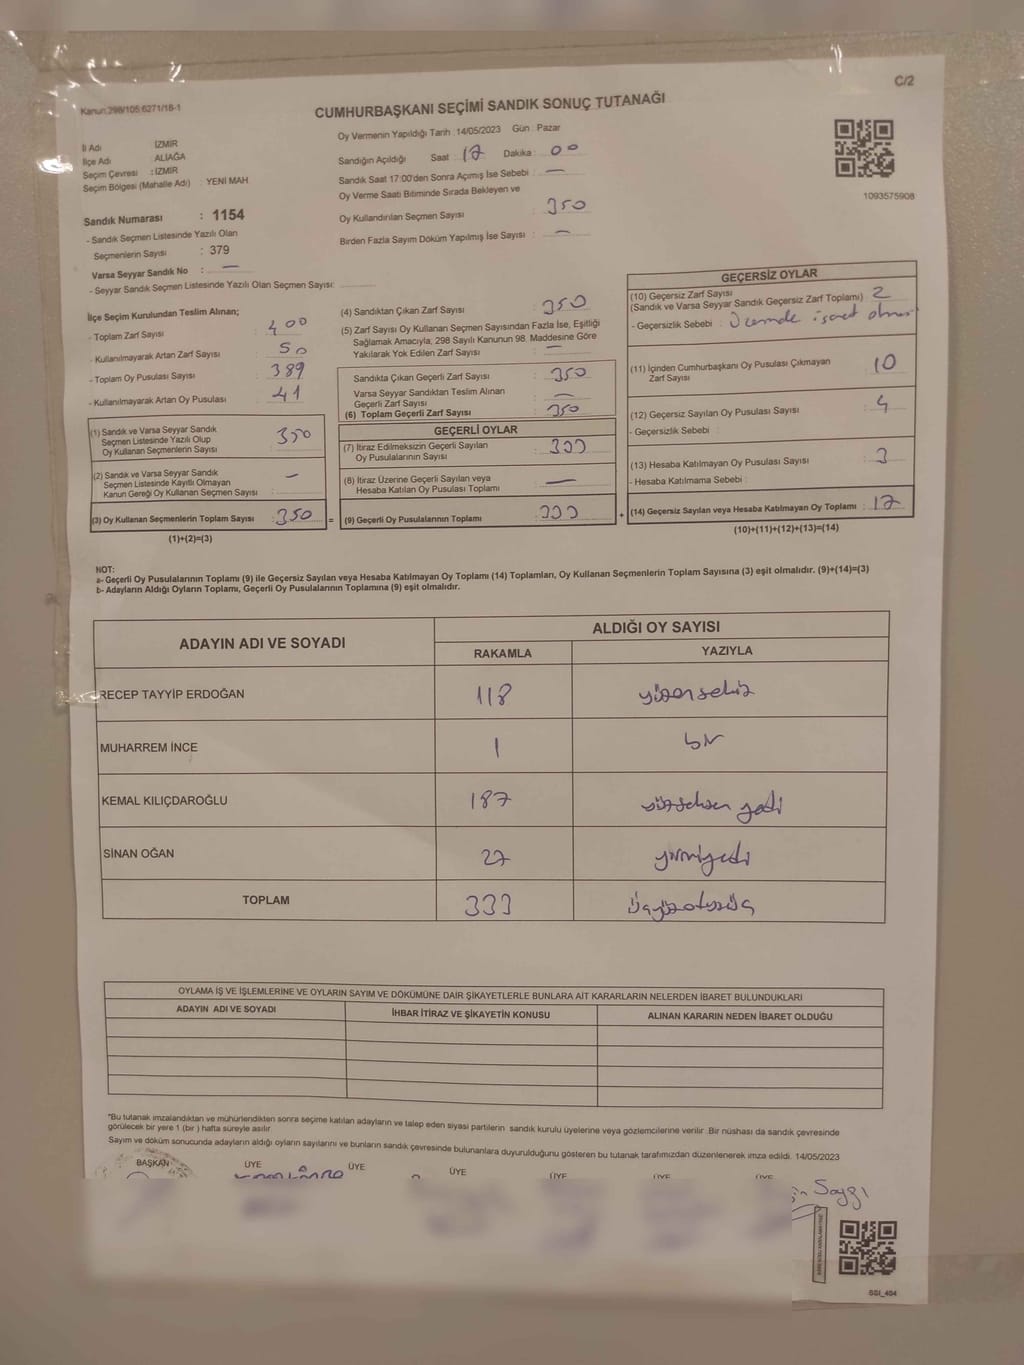 C/2
Kanun:298/105:6271/18-1
CUMHURBAŞKANI SEÇİMİ SANDIK SONUÇ TUTANAĞI
Oy Vermenin Yapıldığı Tarih :14/05/2023 Gün : Pazar
İl Adı İZMİR
İlçe Adı ALİAĞA
Seçim Çevresi : İZMİR
Seçim Bölgesi (Mahalle Adı) : YENİ MAH
Sandık Numarası : 1154
- Sandık Seçmen Listesinde Yazılı Olan
Seçmenlerin Sayısı : 379
Varsa Seyyar Sandık No : —
- Seyyar Sandık Seçmen Listesinde Yazılı Olan Seçmen Sayısı:
Sandığın Açıldığı Saat : 17 Dakika : 00
Sandık Saat 17:00'den Sonra Açımış İse Sebebi : —
Oy Verme Saati Bitiminde Sırada Bekleyen ve
Oy Kullandırılan Seçmen Sayısı : 350
Birden Fazla Sayım Döküm Yapılmış İse Sayısı : —
1093575908
İlçe Seçim Kurulundan Teslim Alınan;
- Toplam Zarf Sayısı : 400
- Kullanılmayarak Artan Zarf Sayısı : 50
- Toplam Oy Pusulası Sayısı : 389
- Kullanılmayarak Artan Oy Pusulası : 41
(1) Sandık ve Varsa Seyyar Sandık
Seçmen Listesinde Yazılı Olup
Oy Kullanan Seçmenlerin Sayısı : 350
(2) Sandık ve Varsa Seyyar Sandık
Seçmen Listesinde Kayıtlı Olmayan
Kanun Gereği Oy Kullanan Seçmen Sayısı : —
(3) Oy Kullanan Seçmenlerin Toplam Sayısı : 350 =
(1)+(2)=(3)
(4) Sandıktan Çıkan Zarf Sayısı : 350
(5) Zarf Sayısı Oy Kullanan Seçmen Sayısından Fazla İse, Eşitliği
Sağlamak Amacıyla, 298 Sayılı Kanunun 98. Maddesine Göre
Yakılarak Yok Edilen Zarf Sayısı : —
Sandıkta Çıkan Geçerli Zarf Sayısı : 350
Varsa Seyyar Sandıktan Teslim Alınan
Geçerli Zarf Sayısı : —
(6) Toplam Geçerli Zarf Sayısı : 350
GEÇERLİ OYLAR
(7) İtiraz Edilmeksizin Geçerli Sayılan
Oy Pusulalarının Sayısı : 333
(8) İtiraz Üzerine Geçerli Sayılan veya
Hesaba Katılan Oy Pusulası Toplamı : —
(9) Geçerli Oy Pusulalarının Toplamı : 333 +
GEÇERSİZ OYLAR
(10) Geçersiz Zarf Sayısı
(Sandık ve Varsa Seyyar Sandık Geçersiz Zarf Toplamı) : 2
- Geçersizlik Sebebi : Üzerinde işaret olması
(11) İçinden Cumhurbaşkanı Oy Pusulası Çıkmayan
Zarf Sayısı : 10
(12) Geçersiz Sayılan Oy Pusulası Sayısı : 4
- Geçersizlik Sebebi :
(13) Hesaba Katılmayan Oy Pusulası Sayısı : 3
- Hesaba Katılmama Sebebi :
(14) Geçersiz Sayılan veya Hesaba Katılmayan Oy Toplamı : 17
(10)+(11)+(12)+(13)=(14)
NOT:
a- Geçerli Oy Pusulalarının Toplamı (9) ile Geçersiz Sayılan veya Hesaba Katılmayan Oy Toplamı (14) Toplamları, Oy Kullanan Seçmenlerin Toplam Sayısına (3) eşit olmalıdır. (9)+(14)=(3)
b- Adayların Aldığı Oyların Toplamı, Geçerli Oy Pusulalarının Toplamına (9) eşit olmalıdır.
ADAYIN ADI VE SOYADI ALDIĞI OY SAYISI
RAKAMLA YAZIYLA
RECEP TAYYİP ERDOĞAN 118 yüzonsekiz
MUHARREM İNCE 1 bir
KEMAL KILIÇDAROĞLU 187 yüzseksen yedi
SİNAN OĞAN 27 yirmiyedi
TOPLAM 333 üçyüzotuzüç
OYLAMA İŞ VE İŞLEMLERİNE VE OYLARIN SAYIM VE DÖKÜMÜNE DAİR ŞİKAYETLERLE BUNLARA AİT KARARLARIN NELERDEN İBARET BULUNDUKLARI
ADAYIN ADI VE SOYADI İHBAR İTİRAZ VE ŞİKAYETİN KONUSU ALINAN KARARIN NEDEN İBARET OLDUĞU
*Bu tutanak imzalandıktan ve mühürlendikten sonra seçime katılan adayların ve talep eden siyasi partilerin sandık kurulu üyelerine veya gözlemcilerine verilir .Bir nüshası da sandık çevresinde
görülecek bir yere 1 (bir ) hafta süreyle asılır
Sayım ve döküm sonucunda adayların aldığı oyların sayılarını ve bunların sandık çevresinde bulunanlara duyurulduğunu gösteren bu tutanak tarafımızdan düzenlenerek imza edildi. 14/05/2023
BAŞKAN ÜYE ÜYE ÜYE ÜYE ÜYE ÜYE
Saygı
SSI_404